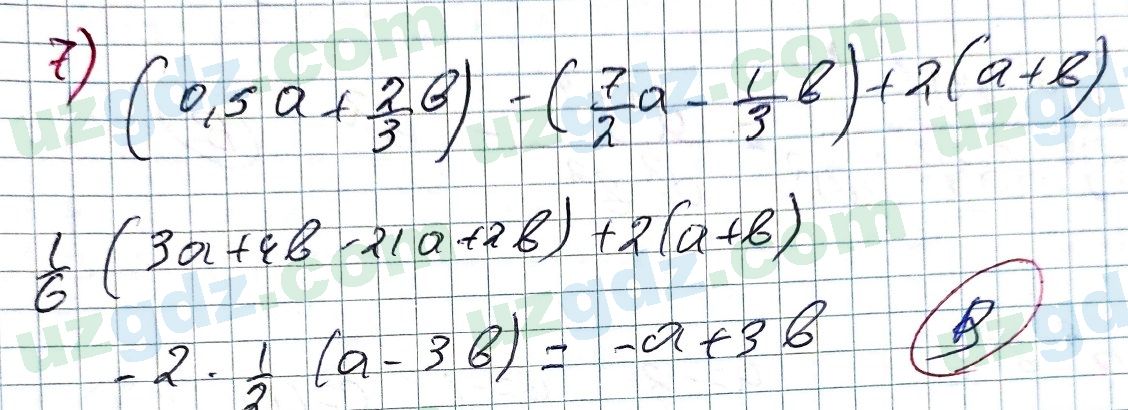 7) (0,5a + 2/3 b) - (7/2 a - 1/3 b) + 2(a+b)
1/6 (3a+4b-21a+2b)+2(a+b)
-2 · 1/2 (a-3b) = -a+3b B
uzgdz.com